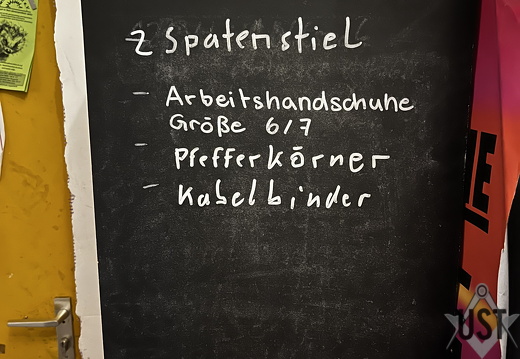 2 Spatenstiel
- Arbeitshandschuhe
Größe 6/7
- Pfefferkörner
- Kabelbinder
UST